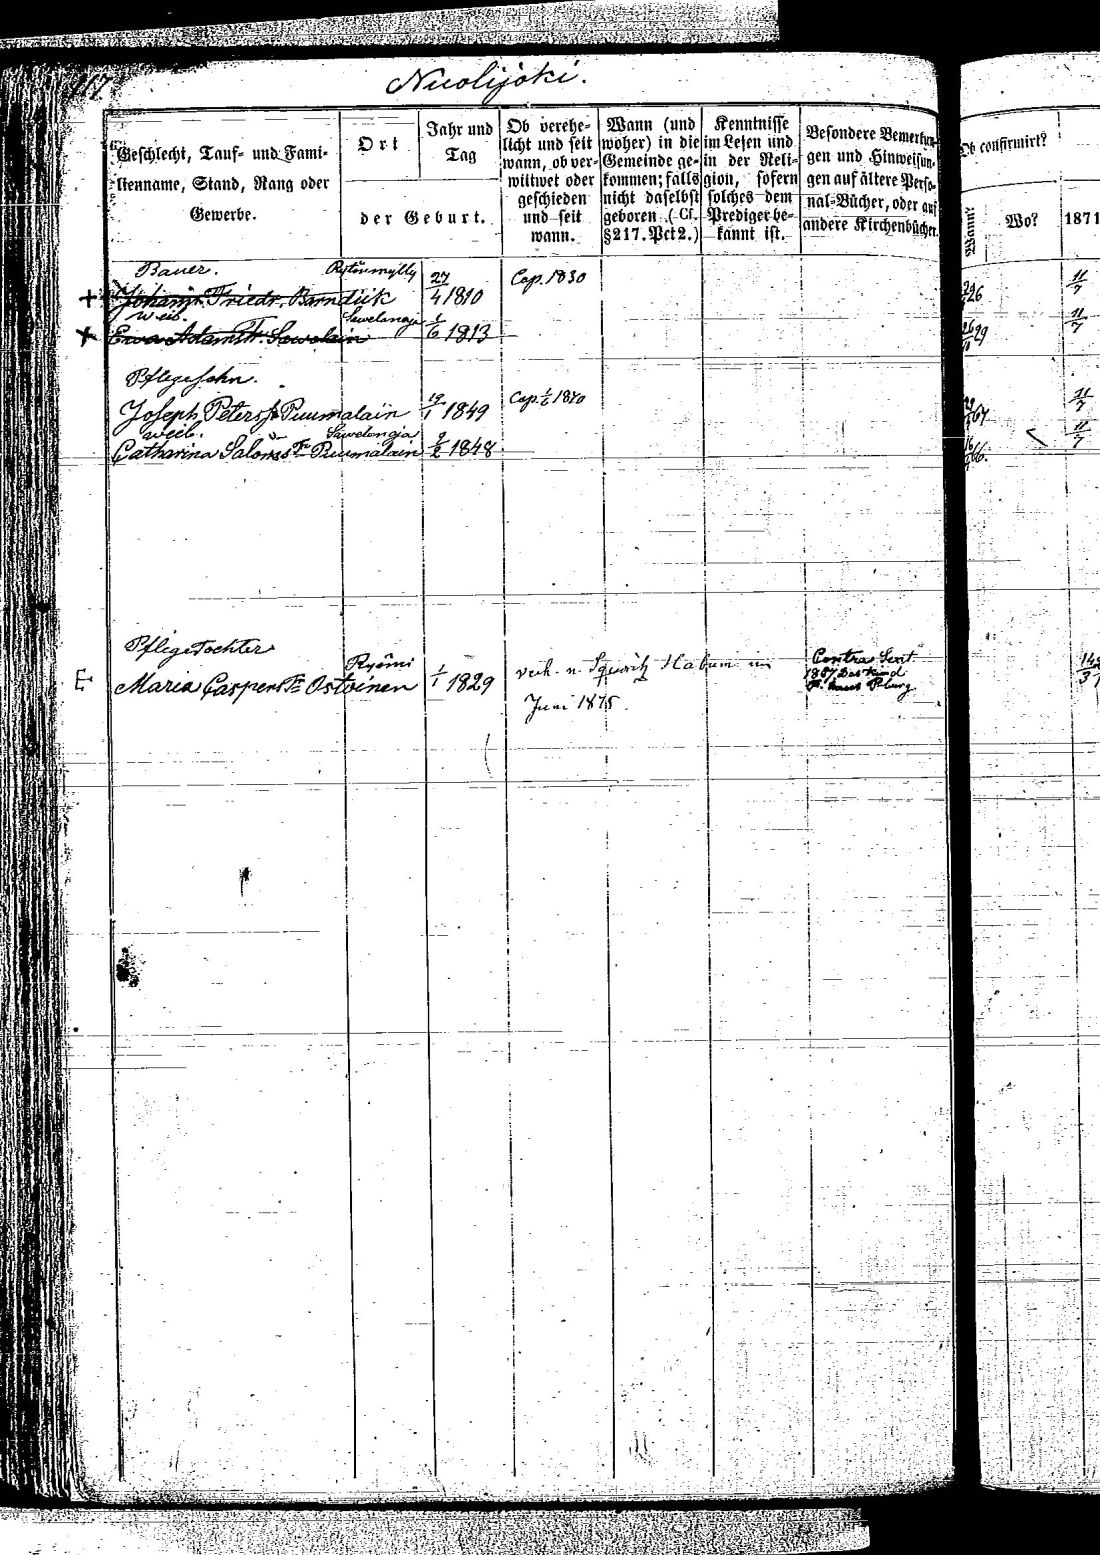 117.
Nuolijoki.
Geschlecht, Tauf- und Fami-
lienname, Stand, Rang oder
Gewerbe.
Ort
Jahr und
Tag
der Geburt.
Ob verehe-
licht und seit
wann, ob ver-
wittwet oder
geschieden
und seit
wann.
Wann (und
woher) in die
Gemeinde ge-
kommen; falls
nicht daselbst
geboren (Cf.
§217. Pct 2.)
Kenntnisse
im Lesen und
in der Reli-
gion, sofern
solches dem
Prediger be-
kannt ist.
Besondere Bemerkun-
gen und Hinweisun-
gen auf ältere Perso-
nal-Bücher, oder auf
andere Kirchenbücher.
Ob confirmirt?
Wann?
Wo?
1871
Bauer. Rytinmylly
+ Johann Friedr. Barndük 27/4 1810 Cop. 1830 26 11/7
Weib. Sawelanaja
+ Ewa Adamstr. Sawolain 1/6 1813 29 11/7
Pflegesohn.
Joseph Peters S. Puumalain 19/1 1849 Cop. 1/6 1870 67 11/7
Weib. Sawelanaja
Catharina Saloms Tr. Puumalain 9/2 1848 66. 11/7
Pflegetochter
E Maria Caspers Tr. Ostoinen 1/1 1829
Juni 1875.
Contra Sext
1857 Das Kind
a. haus Pburg